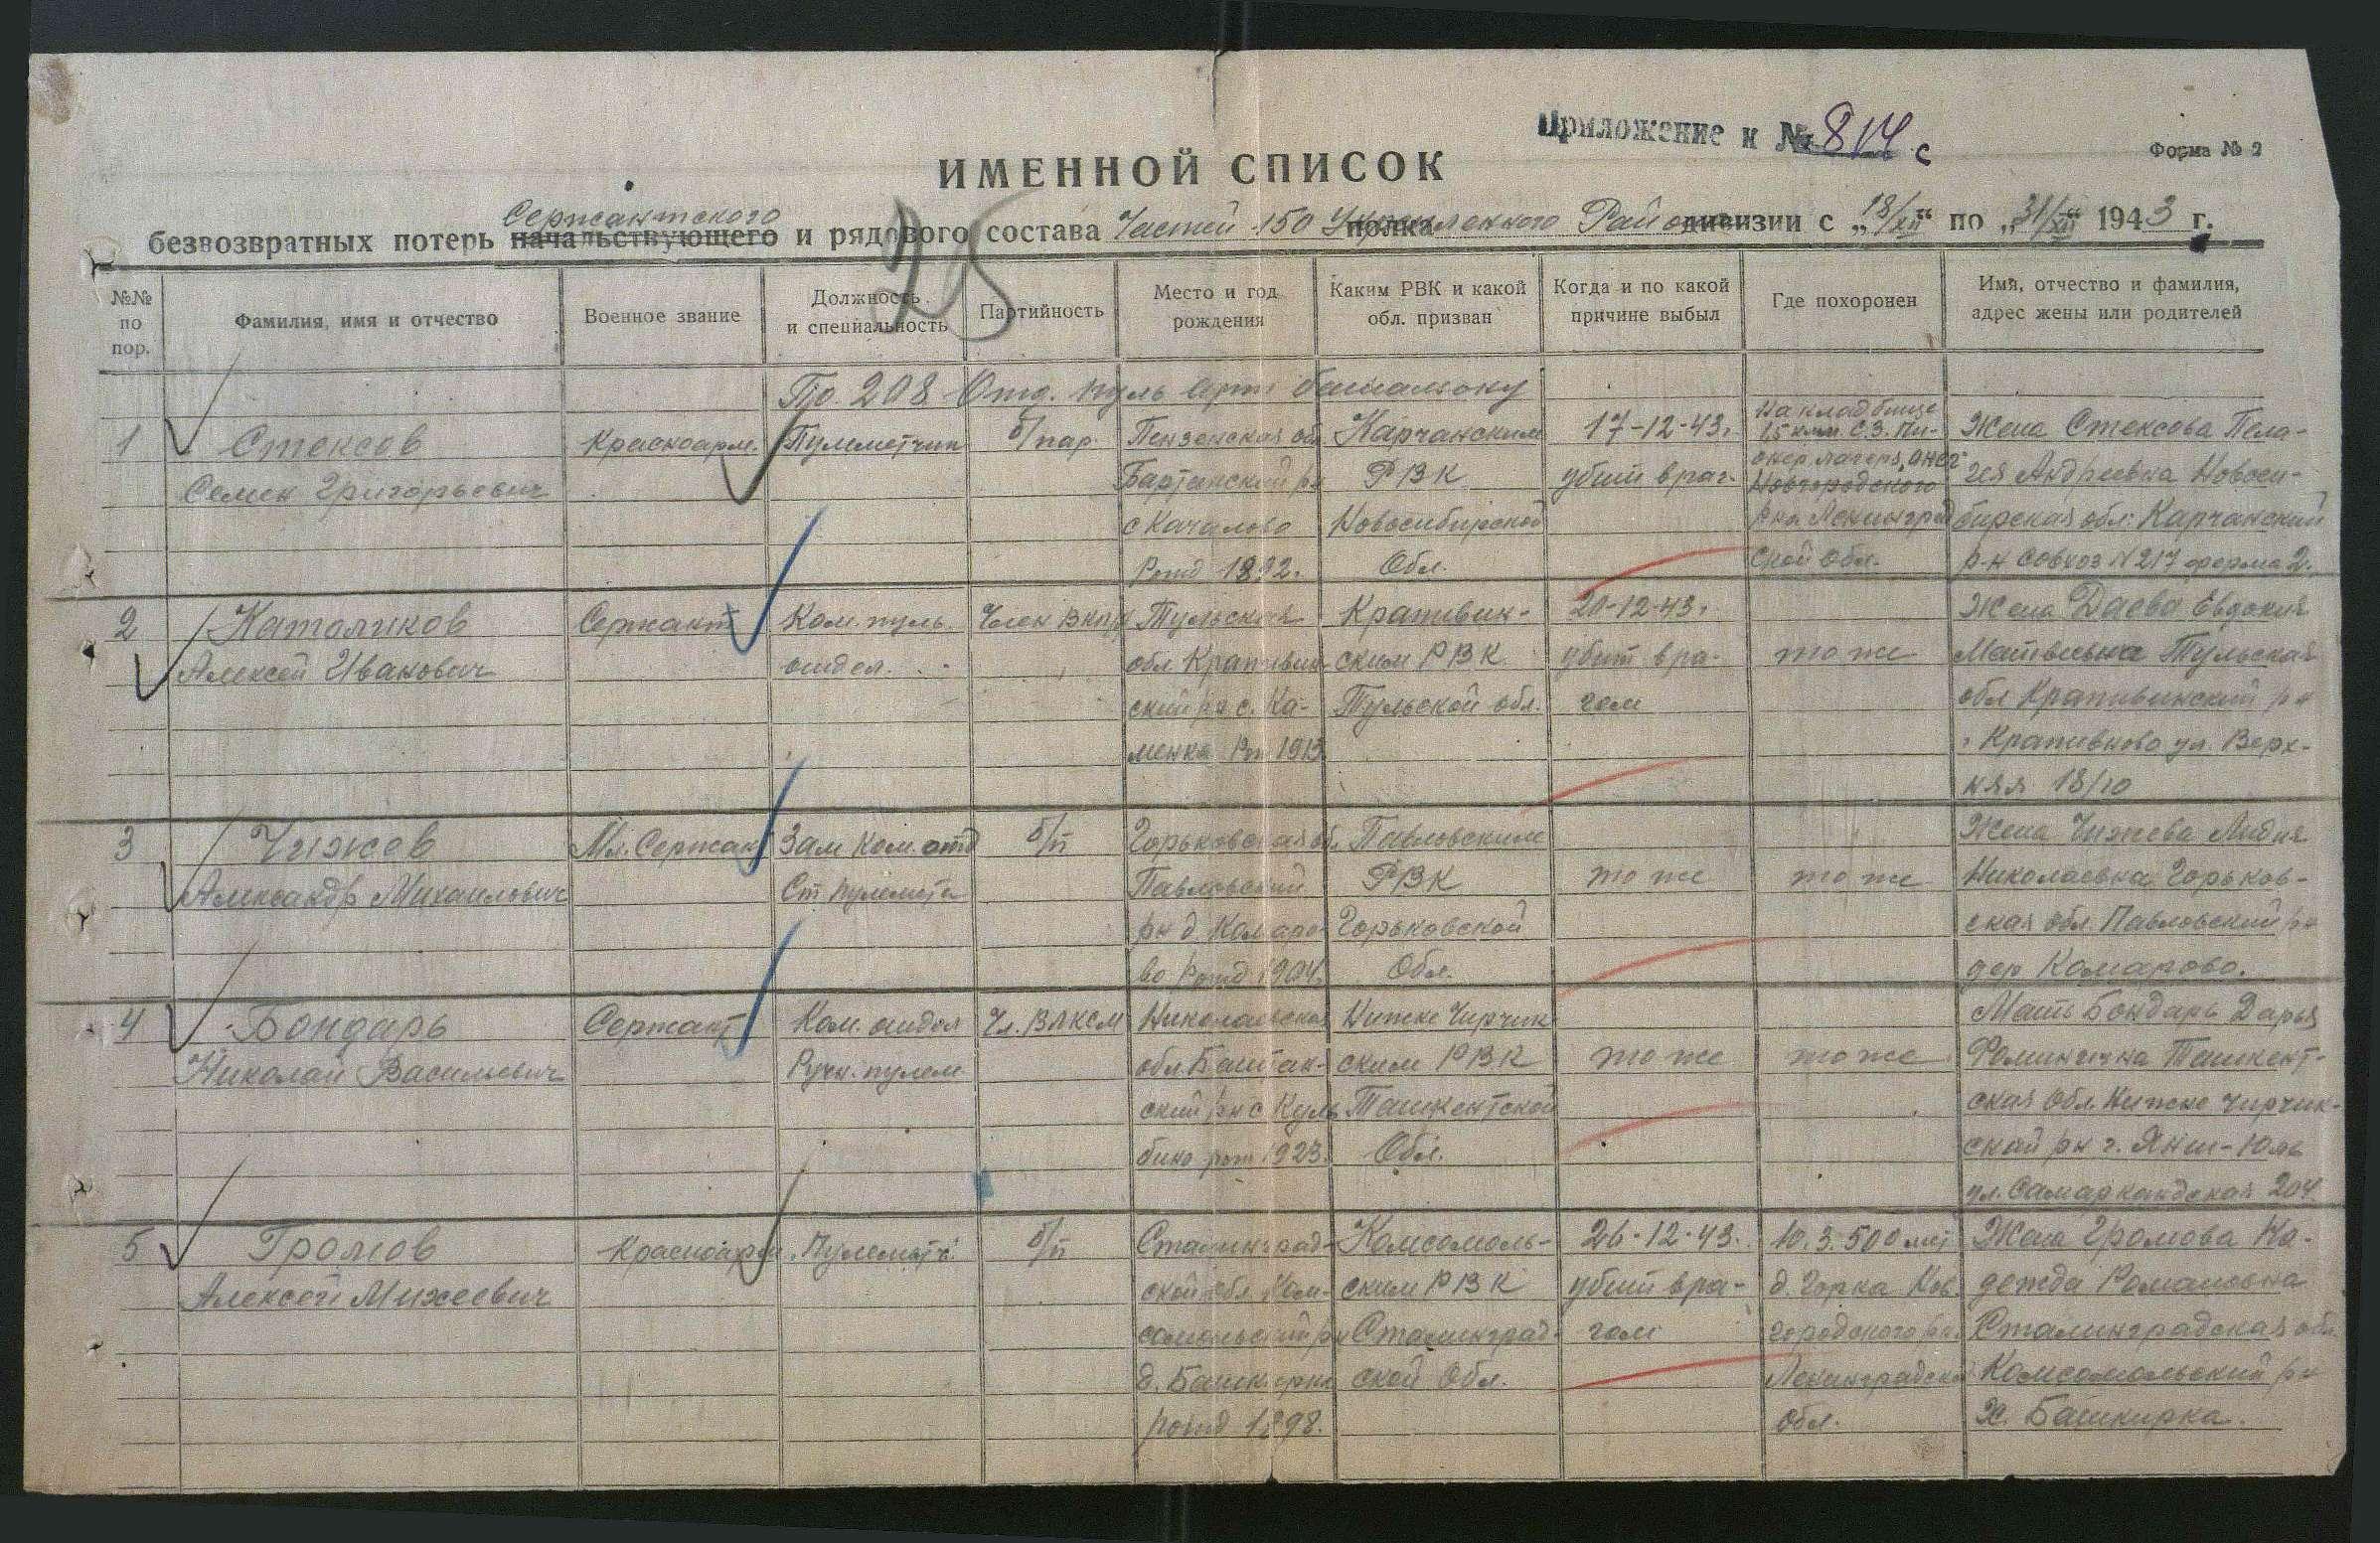 Приложение к № 814 с
Форма № 2
ИМЕННОЙ СПИСОК
Сержантского
безвозвратных потерь начальствующего и рядового состава Частей 150 Укрепленного Района полка дивизии с „18/XII“ по „31/XII“ 1943 г.
25
№№ по пор.
Фамилия, имя и отчество
Военное звание
Должность и специальность
Партийность
Место и год рождения
Каким РВК и какой обл. призван
Когда и по какой причине выбыл
Где похоронен
Имя, отчество и фамилия, адрес жены или родителей
По 208 Отд. пуль арт батальону
1
Стексов
Семен Григорьевич
Красноарм.
Пулеметчик
б/пар.
Пензенская обл
р-н
с Качалово
Рожд 1892.
Карчанским
РВК
Новосибирской
Обл.
17-12-43.
убит враг.
На кладбище
15 клм. С.З. Пи-
онер. лагеря
Новгородского
р-на Ленинград
ской обл.
Жена Стексова Пела-
гея Андреевна Новоси-
бирская обл. Карчанский
р-н Совхоз N 217 ферма 2.
2
Католиков
Алексей Иванович
Сержант
Ком. пуль.
отдел.
Член ВКП/б
Тульская
обл Крапивин-
ский р-н с. Ка-
менка Рож 1913
Крапивин-
ским РВК
Тульской обл.
20-12-43.
убит вра-
гом
то же
Жена Даева Евдокия
Матвеевна Тульская
обл Крапивинский р-н
Крапивново ул. Верх-
няя 18/10
3
Чижов
Александр Михаилович
Мл. Сержан
Зам Ком. отд
Ст пулемета
б/п
Горьковская обл
Павловский
рн д Комаро
во Рожд 1904.
Павловским
РВК
Горьковской
Обл.
то же
то же
Жена Чижева Лидия
Николаевна Горьков-
ская обл. Павловский рн
дер Комарово.
4
Бондарь
Николай Васильевич
Сержант
Ком. отдел
Ручн. пулем
Чл. ВЛКСМ
Николаевская
обл. Баштан-
ский рн с Куль
бино рож 1923.
Нижне Чирчик
ским РВК
Ташкентской
Обл.
то же
то же
Мать Бондарь Дарья
Фоминична Ташкент-
ская Обл. Нижне Чирчик-
ский рн г. Янги-Юль
ул. Самаркандская 204
5
Громов
Алексей Михеевич
Красноарм
Пулемет.
б/п
Сталинград-
ской обл Ком-
сомольский рн
д. Башкирка
рожд 1898.
Комсомоль-
ским РВК
Сталинград-
ской Обл.
26-12-43.
убит вра-
гом
Ю.З. 500 мет
д. Горка Нов-
городского р-на
Ленинградской
обл.
Жена Громова На-
дежда Романовна
Сталинградская обл.
Комсомольский рн
Х. Башкирка.